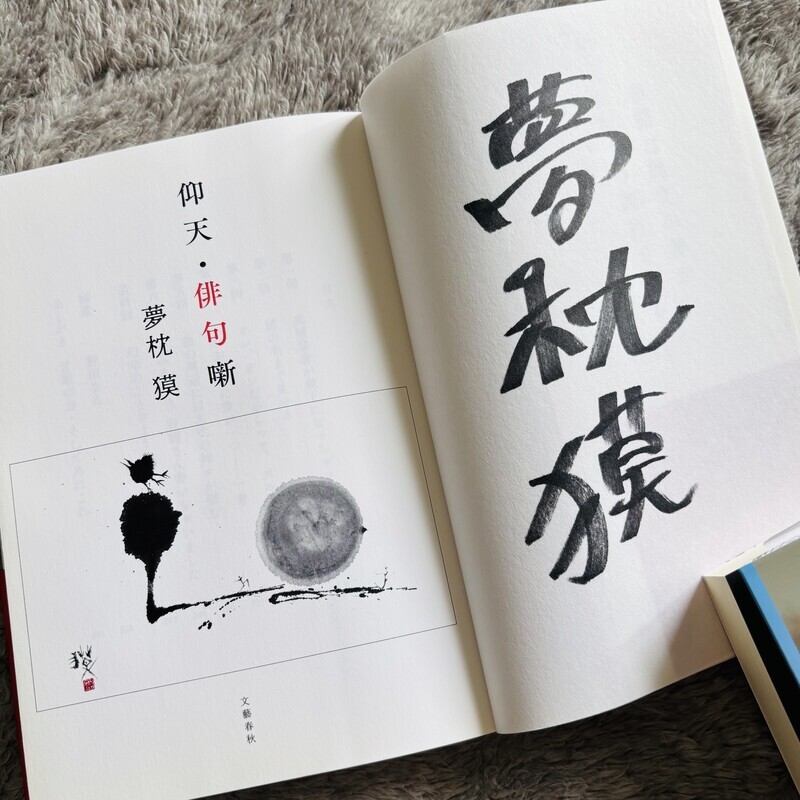 仰天・俳句噺
夢枕 獏
文藝春秋
夢枕獏